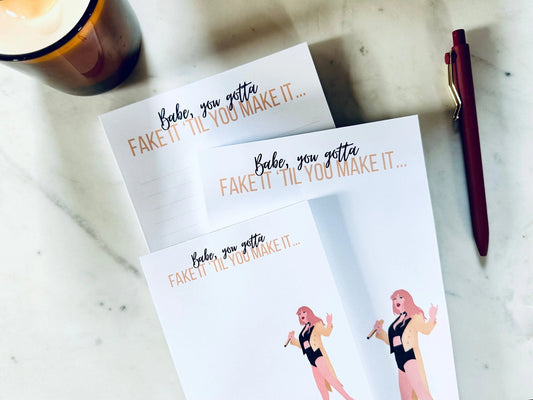 Babe, you gotta
FAKE IT 'TIL YOU MAKE IT...
Babe, you gotta
FAKE IT 'TIL YOU MAKE IT...
Babe, you gotta
FAKE IT 'TIL YOU MAKE IT...